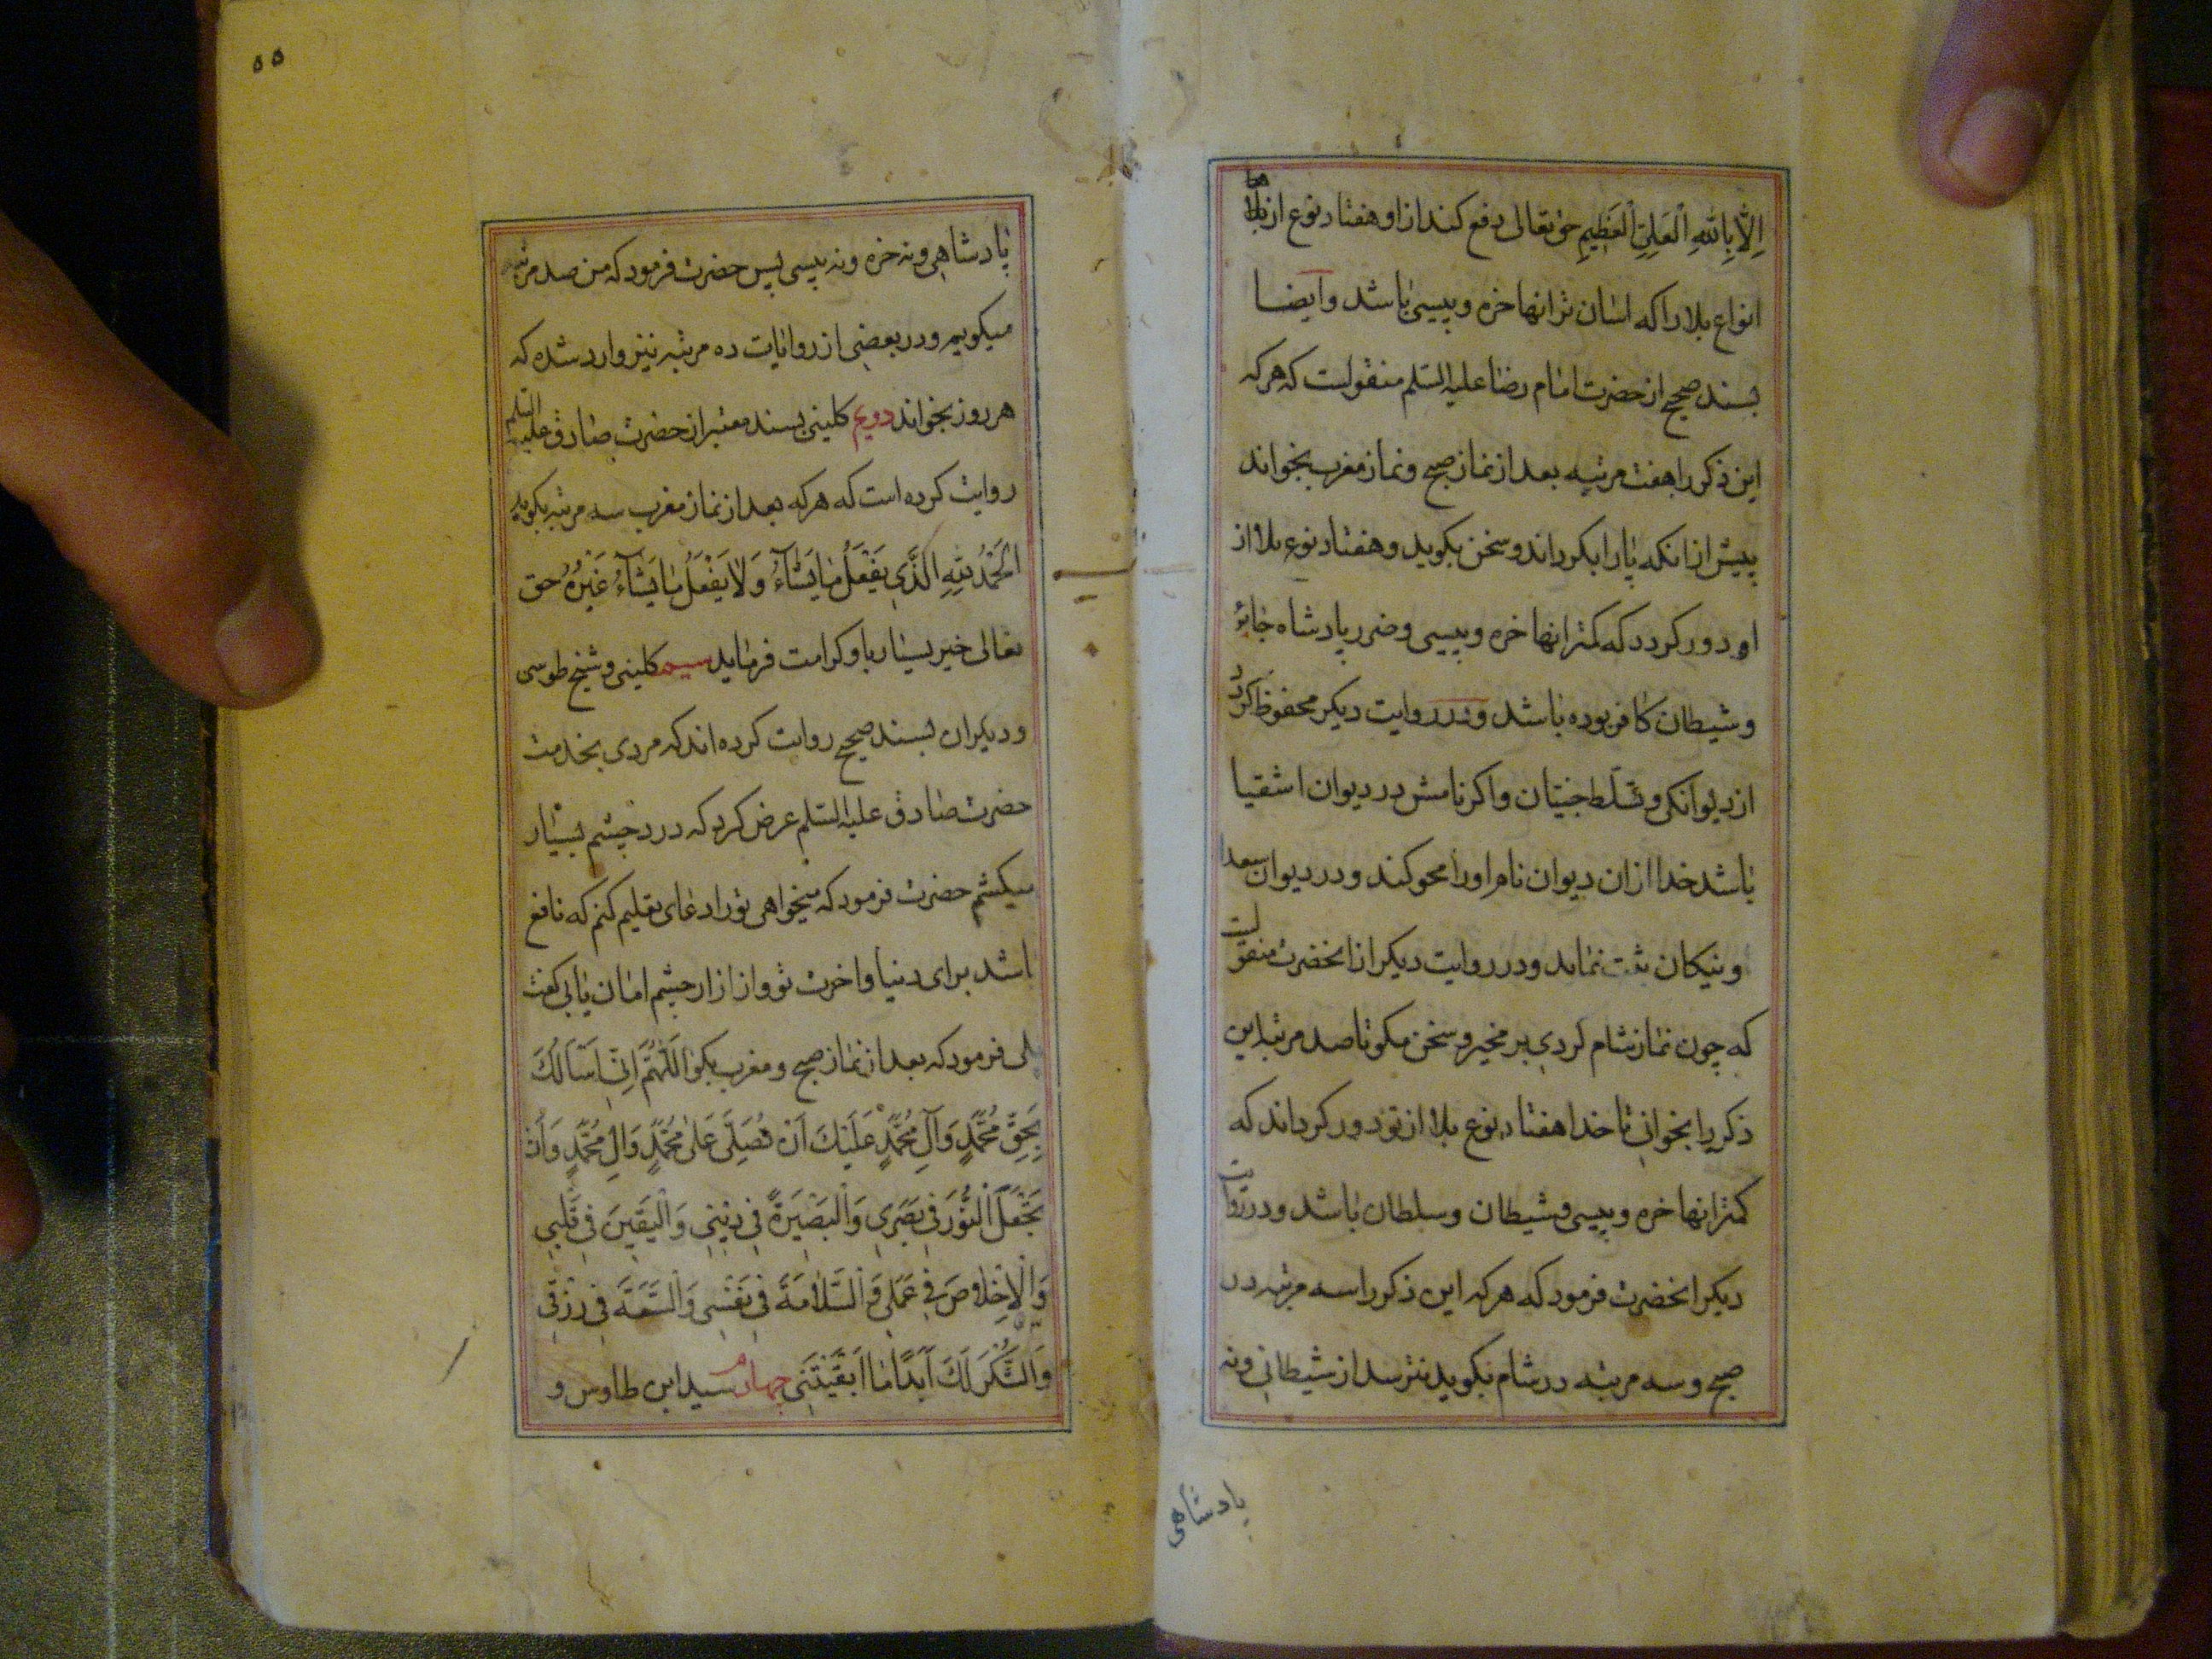 اِلّا بِاللهِ الْعَلِیِّ الْعَظِیمِ حق تعالی دفع کند از او هفتاد نوع از بلاها
انواع بلا را که اسان ترانها خره و پیسی باشد وایضا
بسند صحیح از حضرت امام رضا علیه السلم منقولست که هرکه
این ذکر را هفت مرتبه بعد از نماز صبح و نماز مغرب بخواند
پیش از انکه پا را بکرداند و سخن بکوید و هفتاد نوع بلا از
او دور کردد که کمترانها خره و پیسی و ضرر پادشاه جائر
و شیطان کافر بوده باشد و در روایت دیکر محفوظ کردد
از دیوانکی و تسلّط جنیّان و اکر نامش در دیوان اشقیا
باشد خدا از ان دیوان نام او را محو کند و در دیوان سعدا
و نیکان ثبت نماید و در روایت دیکر از انحضرت منقولست
که چون نماز شام کردی بر مخیز و سخن مکو تا صد مرتبه این
ذکر را بخوانی تا خدا هفتاد نوع بلا از تو دور کرداند که
کمترانها خره و پیسی و شیطان و سلطان باشد و در روایت
دیکر انحضرت فرمود که هرکه این ذکر را سه مرتبه در
صبح و سه مرتبه در شام بکوید نترسد از شیطانی و نه
پادشاهی
۵۵
پادشاهی و نه خره و نه پیسی پس حضرت فرمود که من صد مرتبه
میکویم و در بعضی از روایات ده مرتبه نیز وارد شده که
هر روز بخواند دویم کلینی بسند معتبر از حضرت صادق علیه السلم
روایت کرده است که هرکه بعد از نماز مغرب سه مرتبه بکوید
اَلْحَمْدُ لِلّهِ الَّذی یَفْعَلُ مٰا یَشٰاءُ وَلٰا یَفْعَلُ مٰا یَشٰاءُ غَیْرُهُ حق
تعالی خیر بسیار باو کرامت فرماید سیم کلینی و شیخ طوسی
و دیکران بسند صحیح روایت کرده اند که مردی بخدمت
حضرت صادق علیه السلم عرض کرد که درد چشم بسیار
میکشم حضرت فرمود که میخواهی تو را دعای تعلیم کنم که نافع
باشد برای دنیا و اخرت تو و از ازار چشم امان یابی کفت
بلی فرمود که بعد از نماز صبح و مغرب بکو اَللّهُمَّ اِنّی اَسْاَلُكَ
بِحَقِّ مُحَمَّدٍ وَآلِ مُحَمَّدٍ عَلَیْكَ اَنْ تُصَلِّیَ عَلیٰ مُحَمَّدٍ وَالِ مُحَمَّدٍ وَاَنْ
تَجْعَلَ الْنُّورَ فی بَصَری وَالْبَصیرَةَ فی دینی وَالْیَقینَ فی قَلْبی
وَالْاِخْلاٰصَ فی عَمَلی وَالسَّلاٰمَةَ فی نَفْسی وَالسَّعَةَ فی رِزْقی
وَالشُّکْرَ لَكَ اَبَدًا مٰا اَبْقَیْتَنی چهارم سید ابن طاوس و